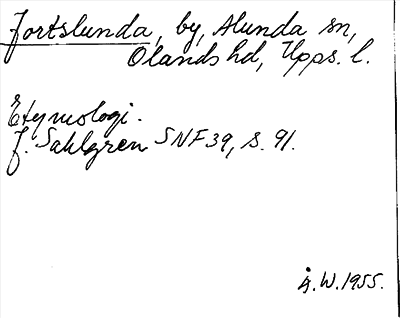 Fortslunda, by, Alunda sn,
Olands hd, Upps. l.
Etymologi.
J. Sahlgren SNF 39, s. 91.
Å.W. 1955.